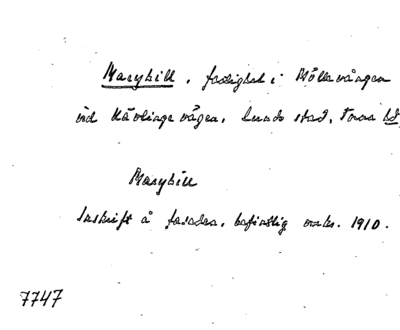 Maryhill, fastighet i Möllevången
vid Kävlinge vägen, Lunds stad, Torna hd
Maryhill
Inskrift å fasaden, befintlig 1910.
7747